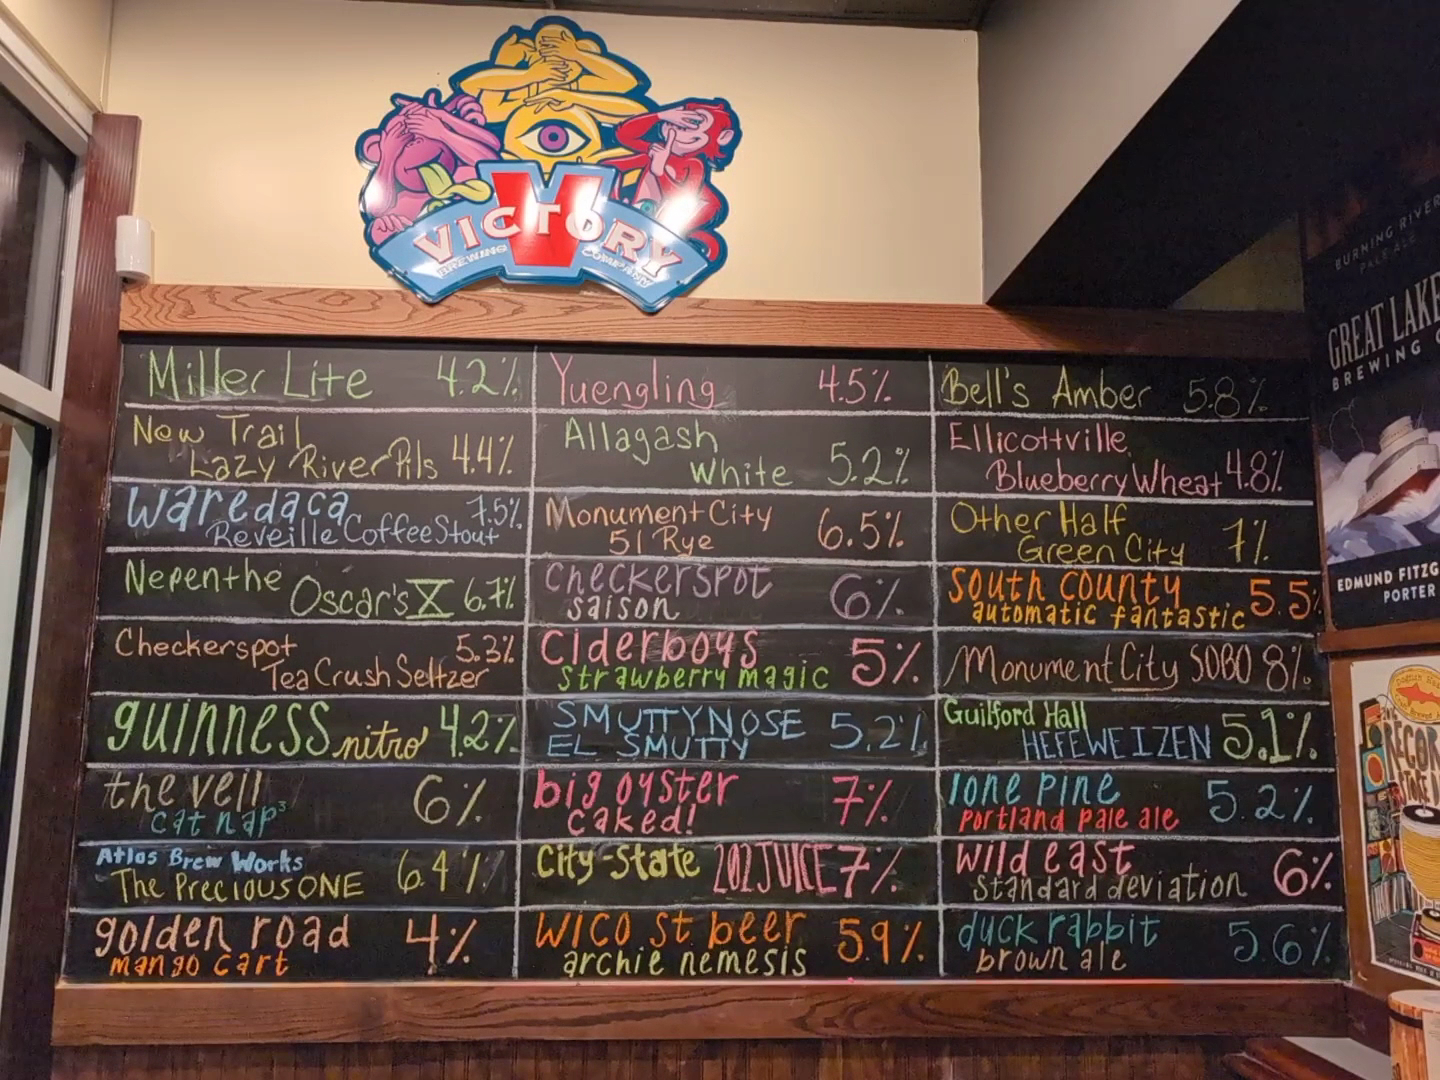 VICTORY
BREWING COMPANY
Miller Lite 4.2%
New Trail
Lazy River Pils 4.4%
Waredaca 7.5%
Reveille Coffee Stout
Nepenthe Oscar's X 6.7%
Checkerspot 5.3%
Tea Crush Seltzer
guinness nitro 4.2%
the veil 6%
cat nap³
Atlas Brew Works
The Precious ONE 6.4%
golden road 4%
mango cart
Yuengling 4.5%
Allagash
White 5.2%
Monument City 6.5%
51 Rye
Checkerspot 6%
saison
Ciderboys 5%
strawberry magic
SMUTTYNOSE 5.2%
EL SMUTTY
big oyster 7%
caked!
City-State 202 JUICE 7%
wico st beer 5.9%
archie nemesis
Bell's Amber 5.8%
Ellicottville
Blueberry Wheat 4.8%
Other Half 7%
Green City
south county 5.5%
automatic fantastic
Monument City SOBO 8%
Guilford Hall 5.1%
HEFEWEIZEN
lone pine 5.2%
portland pale ale
wild east 6%
standard deviation
duck rabbit 5.6%
brown ale
BURNING RIVER
PALE ALE
GREAT LAKE
BREWING
EDMUND FITZG
PORTER